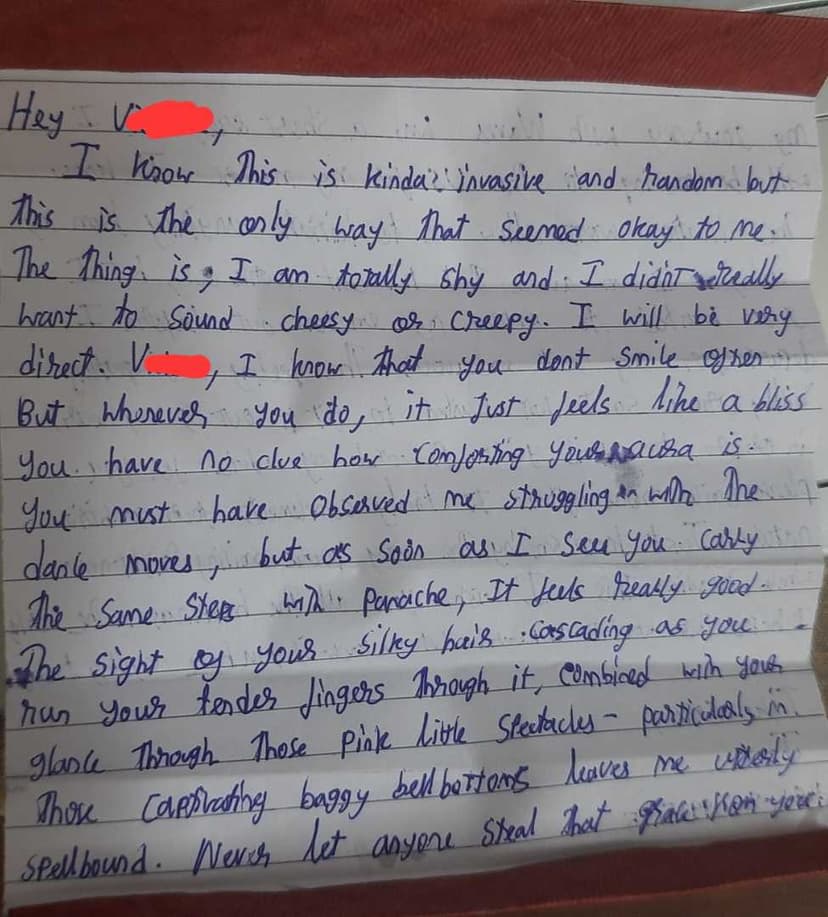 Hey V
I know This is kinda invasive and random but
this is the only way that seemed okay to me.
The thing is, I am totally shy and I didnt really
want to sound cheesy or creepy. I will be very
direct. V, I know that you dont smile often
But whenever you do, it just feels like a bliss
you have no clue how comforting your aura is.
You must have observed me struggling with The
dance moves, but as soon as I see you carry
The same steps with panache, It feels really good.
The sight of your silky hair cascading as you
run your tender fingers Through it, combined with your
glance Through Those Pink little Spectacles - particularly in
Those captivating baggy bell bottoms leaves me utterly
spellbound. Never let anyone steal that grace from you